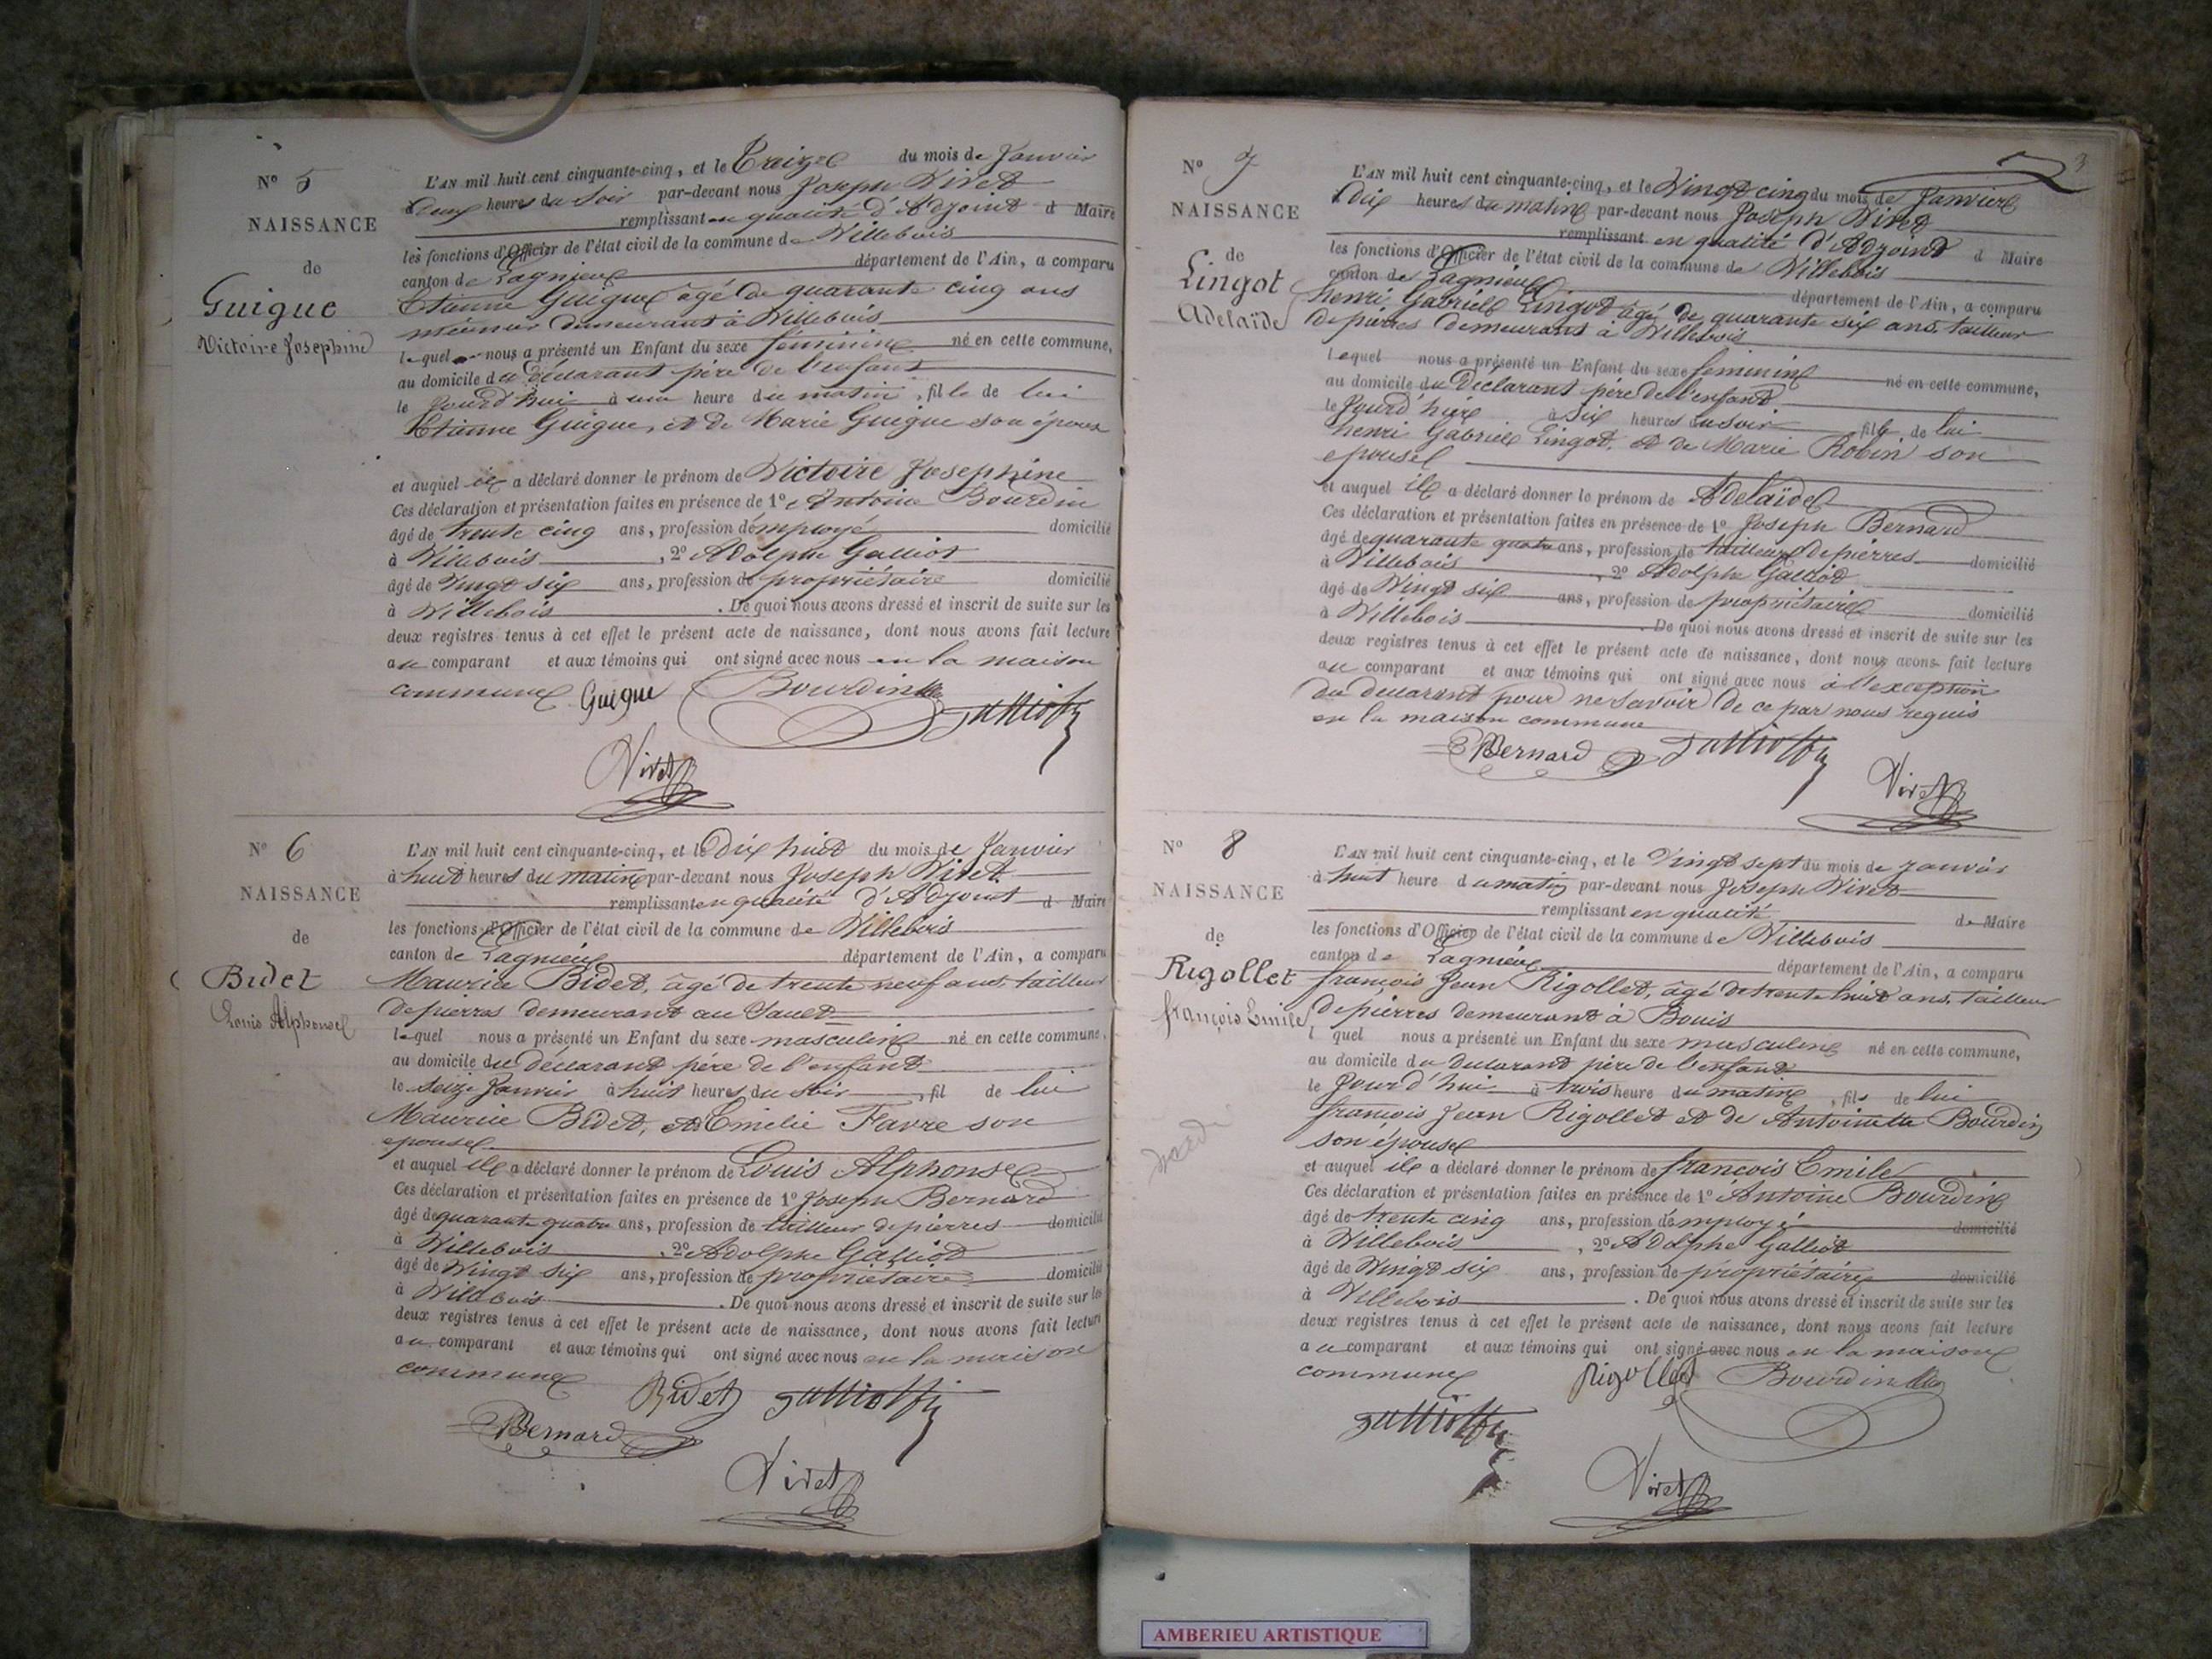 Nº 5
NAISSANCE
de
Guigue
Victoire Josephine
L'AN mil huit cent cinquante-cinq, et le Treize du mois de Janvier
à deux heures du Soir par-devant nous Joseph Vivet
remplissant en qualité d'Adjoint d Maire
les fonctions d'Officier de l'état civil de la commune de Villebois
canton de Lagnieux département de l'Ain, a comparu
Etienne Guigue âgé de quarante cinq ans
meunier demeurant à Villebois
lequel nous a présenté un Enfant du sexe féminin né en cette commune,
au domicile du déclarant père de l'enfant
le Jourd'hui à une heure du matin, fille de lui
Etienne Guigue, et de Marie Guigue son épouse
et auquel il a déclaré donner le prénom de Victoire Josephine
Ces déclaration et présentation faites en présence de 1º Antoine Bourdin
âgé de trente cinq ans, profession d'employé domicilié
à Villebois, 2º Adolphe Galliot
âgé de Vingt six ans, profession de propriétaire domicilié
à Villebois. De quoi nous avons dressé et inscrit de suite sur les
deux registres tenus à cet effet le présent acte de naissance, dont nous avons fait lecture
au comparant et aux témoins qui ont signé avec nous en la maison
commune Guigue Bourdin Galliot
Vivet
Nº 6
NAISSANCE
de
Bidet
Louis Alphonse
L'AN mil huit cent cinquante-cinq, et le Dix huit du mois de Janvier
à huit heures du matin par-devant nous Joseph Vivet
remplissant en qualité d'Adjoint d Maire
les fonctions d'Officier de l'état civil de la commune de Villebois
canton de Lagnieux département de l'Ain, a comparu
Maurice Bidet, âgé de trente neuf ans, tailleur
de pierres demeurant au Sault
lequel nous a présenté un Enfant du sexe masculin né en cette commune,
au domicile du déclarant père de l'enfant
le seize Janvier à huit heures du soir, fil de lui
Maurice Bidet, et Emélie Favre son
epouse
et auquel il a déclaré donner le prénom de Louis Alphonse
Ces déclaration et présentation faites en présence de 1º Joseph Bernard
âgé de quarante quatre ans, profession de tailleur de pierres domicilié
à Villebois, 2º Adolphe Galliot
âgé de Vingt six ans, profession de propriétaire domicilié
à Villebois. De quoi nous avons dressé et inscrit de suite sur les
deux registres tenus à cet effet le présent acte de naissance, dont nous avons fait lecture
au comparant et aux témoins qui ont signé avec nous en la maison
commune Bidet Galliot
Bernard
Vivet
3
Nº 7
NAISSANCE
de
Lingot
Adelaïde
L'AN mil huit cent cinquante-cinq, et le Vingt cinq du mois de Janvier
à dix heures du matin par-devant nous Joseph Vivet
remplissant en qualité d'Adjoint d Maire
les fonctions d'Officier de l'état civil de la commune de Villebois
canton de Lagnieux département de l'Ain, a comparu
henri Gabriel Lingot âgé de quarante six ans, tailleur
de pierres demeurant à Villebois
lequel nous a présenté un Enfant du sexe feminin né en cette commune,
au domicile du Déclarant père de l'enfant
le Jourd'hui à six heures du soir fille de lui
henri Gabriel Lingot, et de Marie Robin son
epouse
et auquel il a déclaré donner le prénom de Adelaïde
Ces déclaration et présentation faites en présence de 1º Joseph Bernard
âgé de quarante quatre ans, profession de tailleur de pierres domicilié
à Villebois, 2º Adolphe Galliot
âgé de Vingt six ans, profession de propriétaire domicilié
à Villebois. De quoi nous avons dressé et inscrit de suite sur les
deux registres tenus à cet effet le présent acte de naissance, dont nous avons fait lecture
au comparant et aux témoins qui ont signé avec nous à l'exception
du declarant pour ne savoir de ce par nous requis
en la maison commune
Bernard Galliot
Vivet
Nº 8
NAISSANCE
de
Rigollet
françois Emile
L'AN mil huit cent cinquante-cinq, et le Vingt sept du mois de janvier
à huit heure du matin par-devant nous Joseph Vivet
remplissant en qualité de Maire
les fonctions d'Officier de l'état civil de la commune de Villebois
canton de Lagnieux département de l'Ain, a comparu
françois Jean Rigollet, âgé de trente huit ans, tailleur
de pierres demeurant à Bouis
l quel nous a présenté un Enfant du sexe masculin né en cette commune,
au domicile du declarant père de l'enfant
le Jourd'hui à trois heure du matin, fils de lui
françois Jean Rigollet et de Antoinette Bourdin
son épouse
et auquel il a déclaré donner le prénom de françois Emile
Ces déclaration et présentation faites en présence de 1º Antoine Bourdin
âgé de trente cinq ans, profession d'employé domicilié
à Villebois, 2º Adolphe Galliot
âgé de Vingt six ans, profession de propriétaire domicilié
à Villebois. De quoi nous avons dressé et inscrit de suite sur les
deux registres tenus à cet effet le présent acte de naissance, dont nous avons fait lecture
au comparant et aux témoins qui ont signé avec nous en la maison
commune Rigollet Bourdin
Galliot
Vivet
AMBERIEU ARTISTIQUE